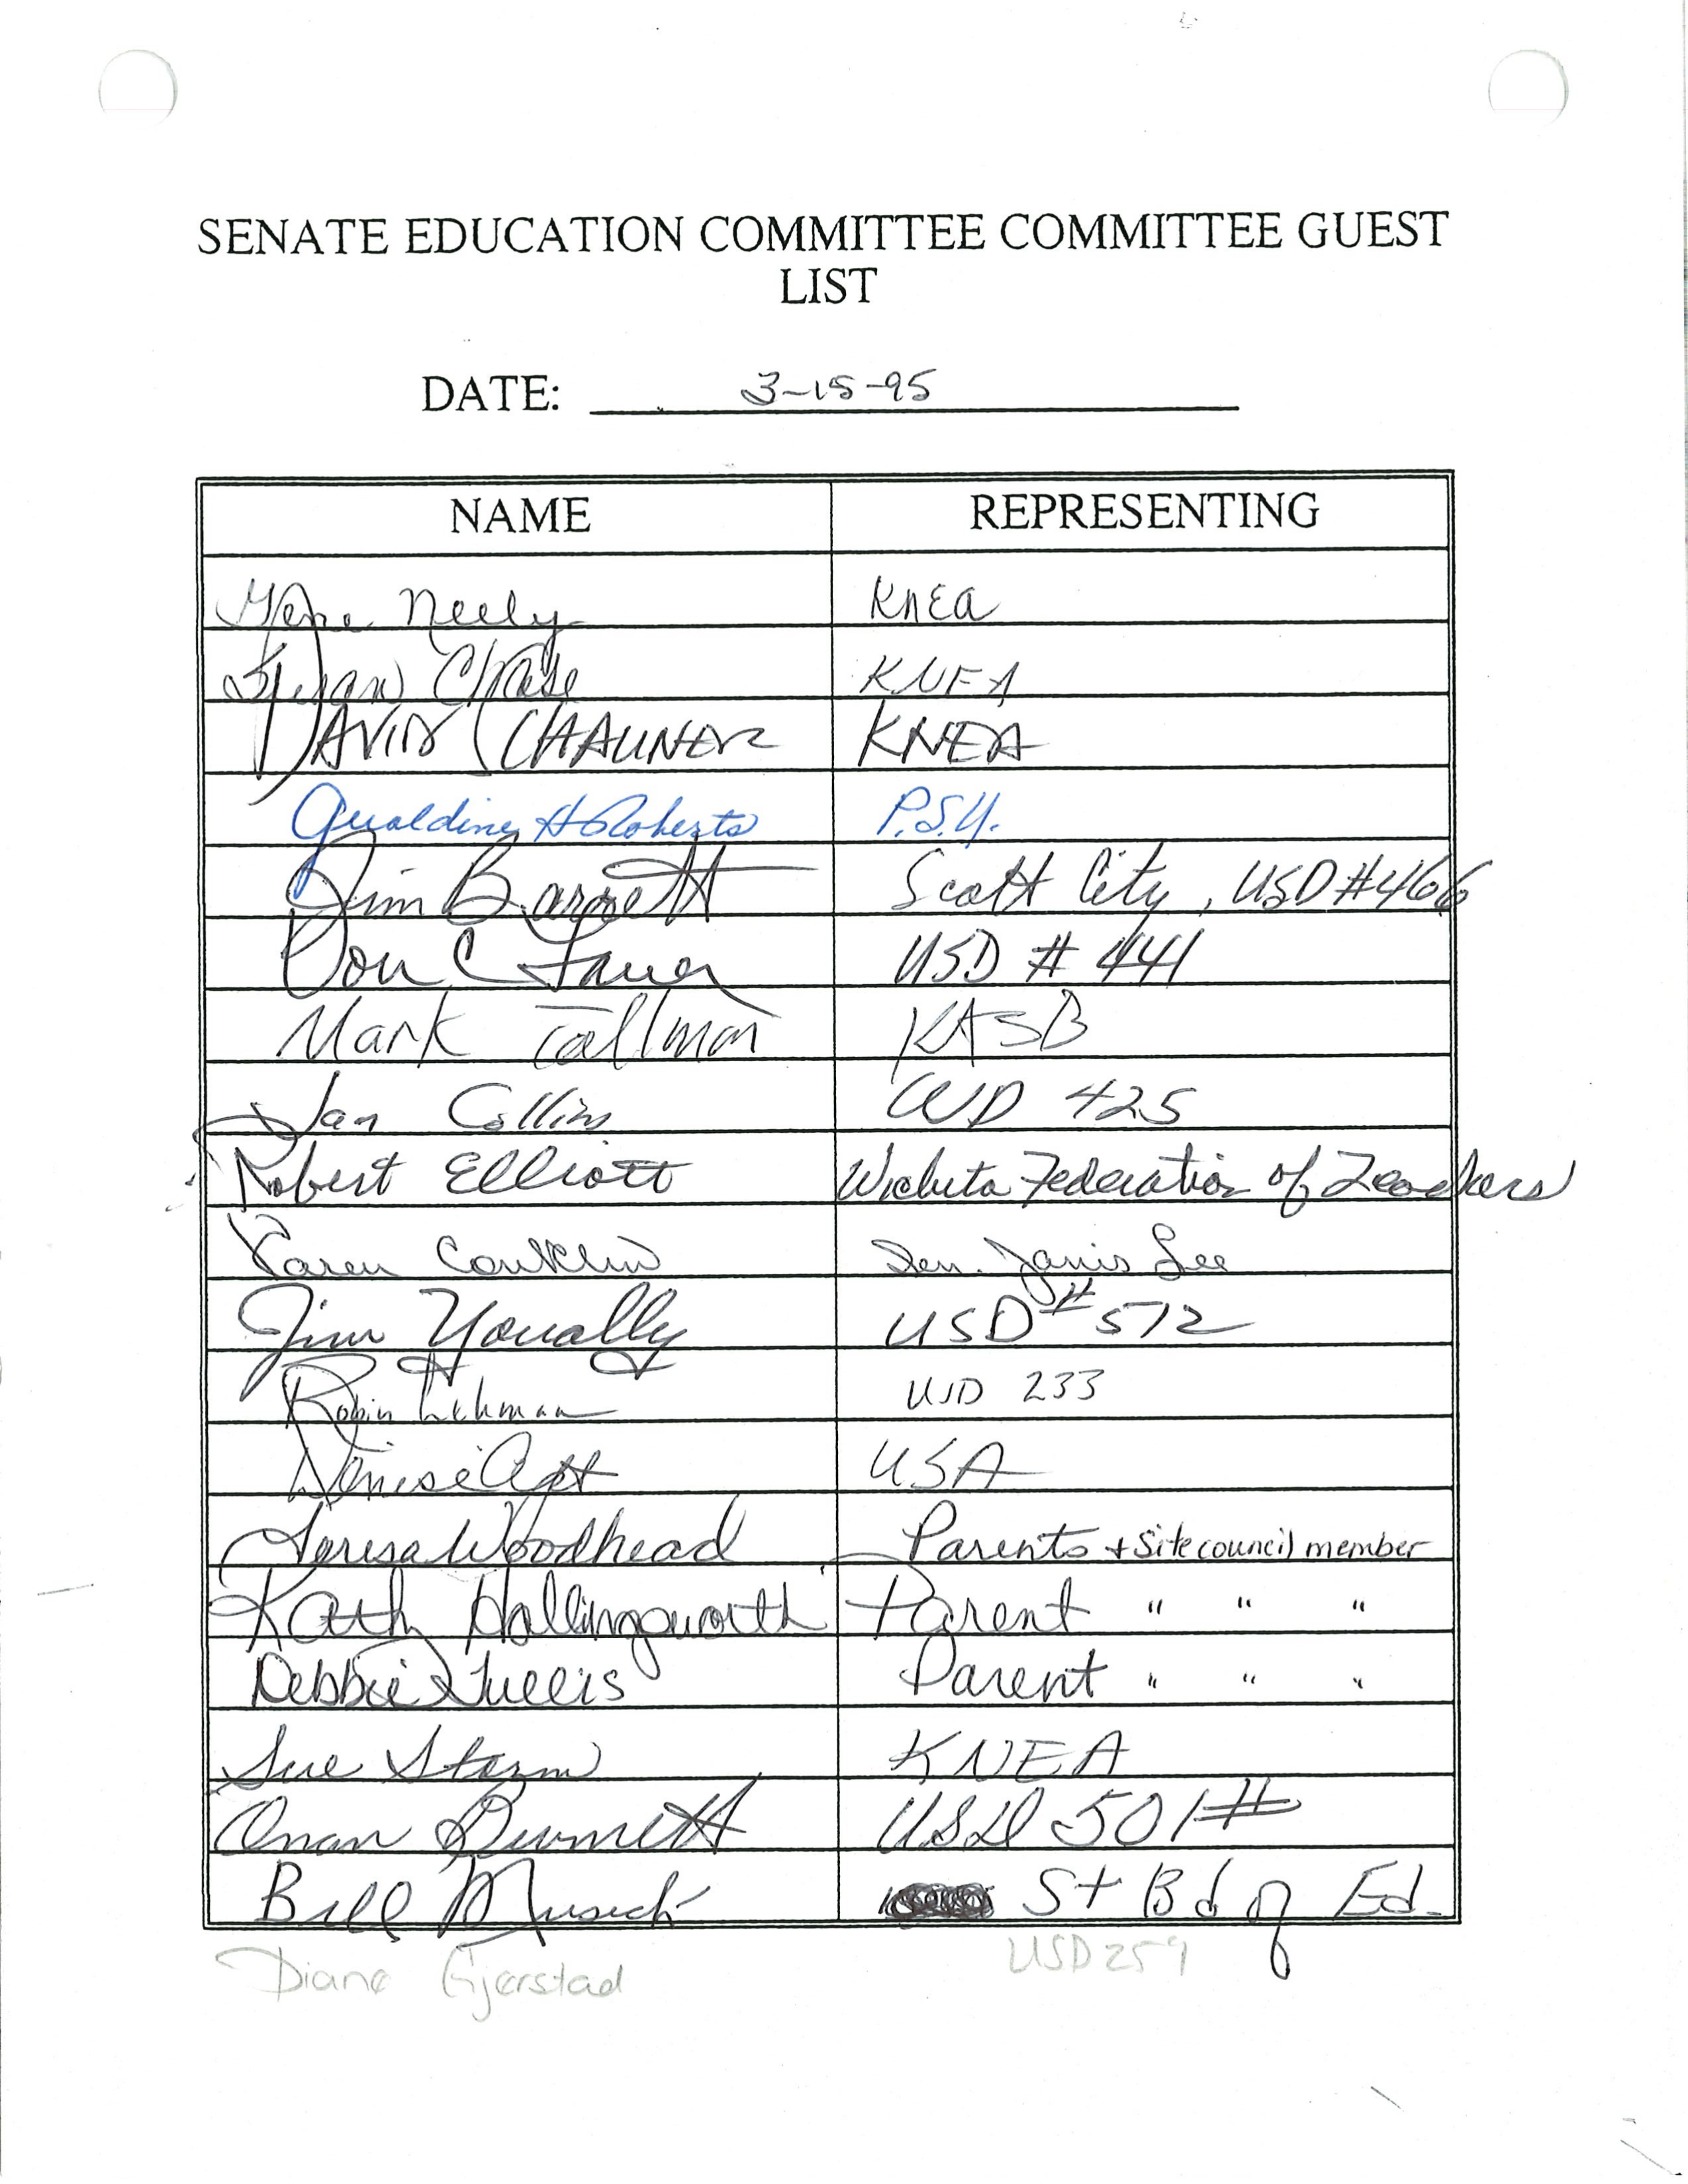 SENATE EDUCATION COMMITTEE COMMITTEE GUEST
LIST
DATE: 3-15-95
NAME REPRESENTING
Gene Neely KNEA
Susan Chase KNEA
DAVID SCHAUNER KNEA
Geraldine H Roberts P.S.U.
Jim Barnett Scott City, USD #466
Don C USD # 441
Mark Tallman KASB
Jan Collins USD 425
Robert Elliott Wichita Federation of Teachers
Karen Conklin Sen. Janis Lee
Jim Youally USD #512
Robin Lehman USD 233
Denise Apt USA
Teresa Woodhead Parents + Site council member
Kath Hollingsworth Parent " " "
Debbie Tullis Parent " " "
Sue Storm KNEA
Onan Burnett USD 501#
Bill Musick St Bd of Ed.
Diane Gjerstad USD 259